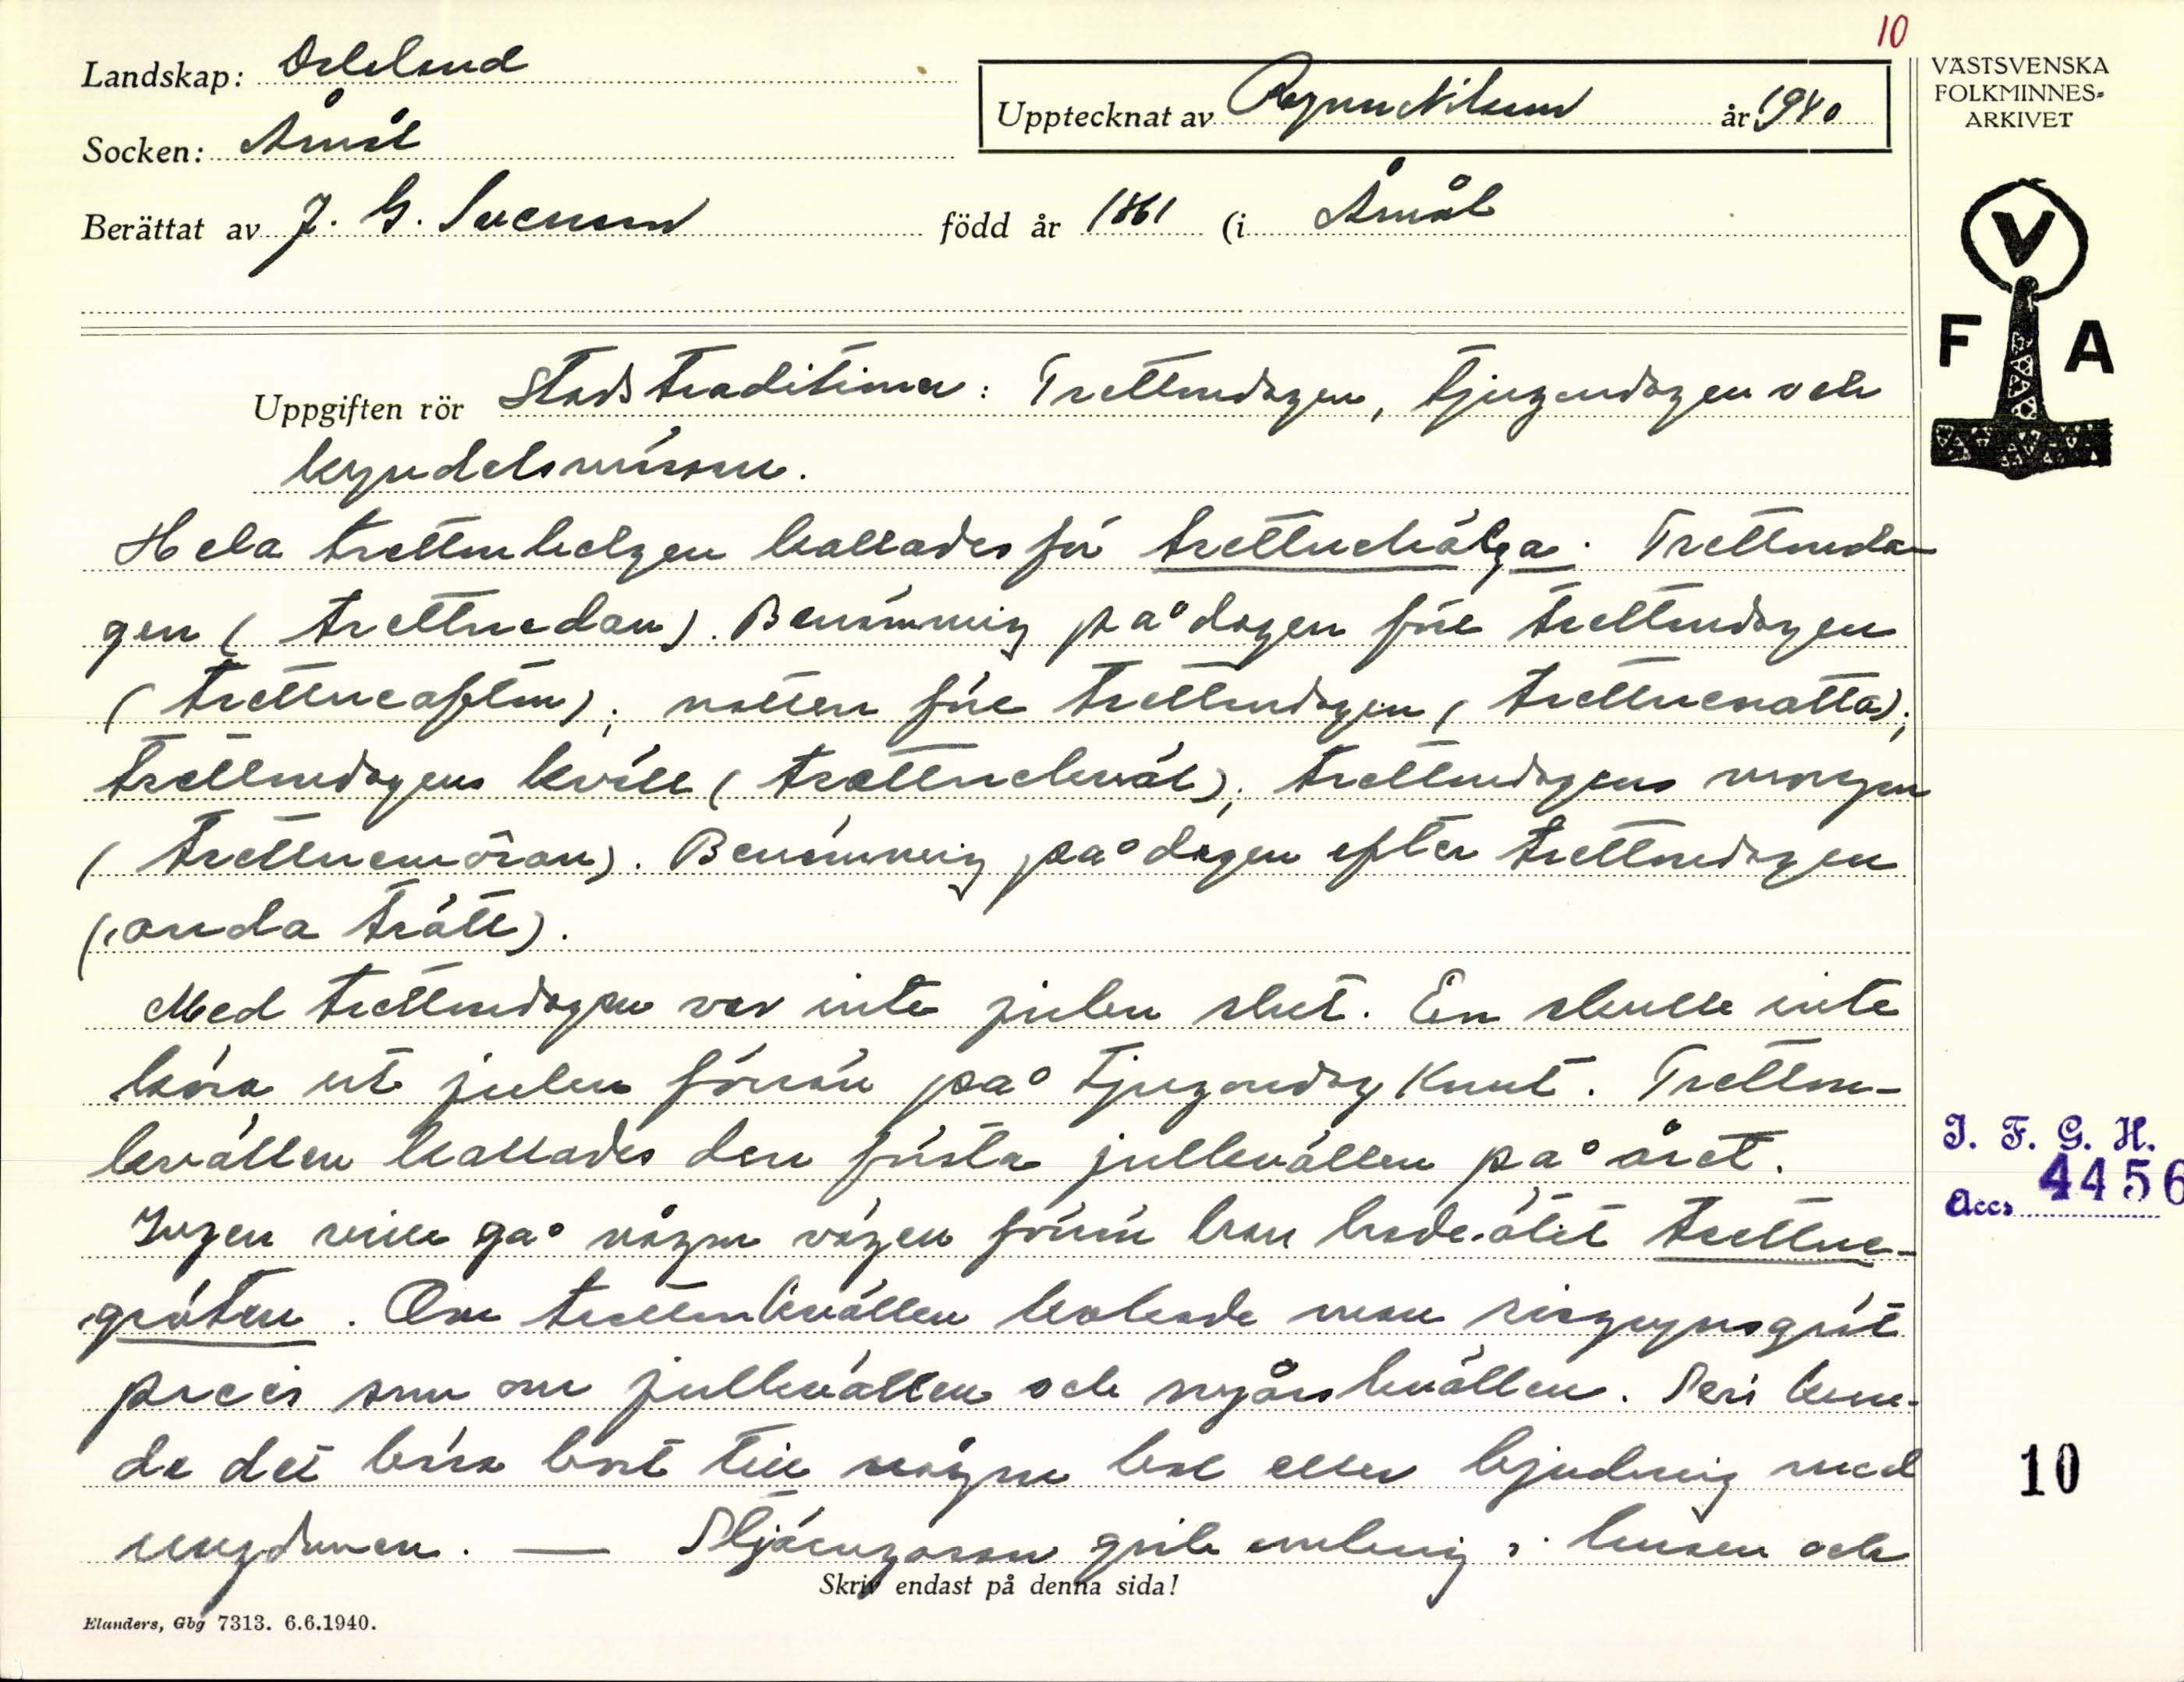 10
Landskap: Dalsland
Upptecknat av Ragnar Nilsson år 1940
VÄSTSVENSKA
FOLKMINNES-
ARKIVET
Socken: Åmål
Berättat av J. G. Svensson född år 1861 (i Åmål
V
F A
Uppgiften rör Stadstraditioner: Trettondagen, tjugondagen och
kyndelsmässan.
Hela trettonhelgen kallades för trettnehälga. Trettonda-
gen (trettnedan). Benämning på dagen före trettondagen
(trettneaften); natten före trettondagen (trettnenatta);
trettondagens kväll (trettnekväl); trettondagens morgon
(trettnemôran). Benämning på dagen efter trettondagen
(anda trätt).
Med trettondagen var inte julen slut. En skulle inte
köra ut julen förrän på Tjugondag Knut. Tretton-
kvällen kallades den sista julkvällen på året.
Ingen ville gå någon vägen förrän han hade ätit trettne-
gröten. Om trettonkvällen kokade man risgrynsgröt
precis som om julkvällen och nyårskvällen. Sen kun-
de det bära bort till någon bal eller bjudning med
ungdomen. — Stjärngossar gick omkring i husen och
Skriv endast på denna sida!
Elanders, Gbg 7313. 6.6.1940.
I. F. G. H.
Accs 4456
10